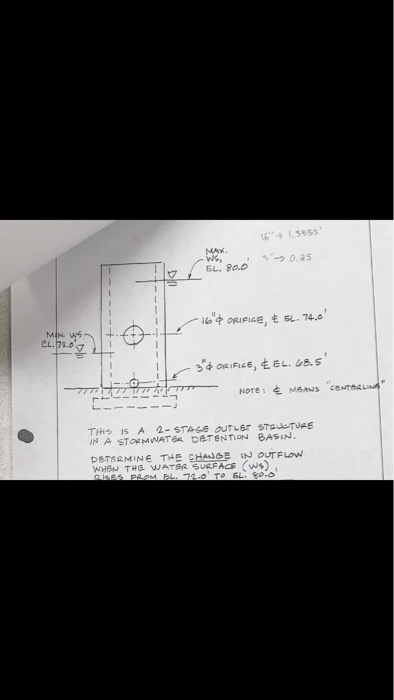 16" → 1.3333'
3" → 0.25
MAX.
WS,
EL. 80.0'
16"φ ORIFICE, ℄ EL. 74.0'
MIN. WS
EL. 72.0'
3"φ ORIFICE, ℄ EL. 68.5'
NOTE: ℄ MEANS "CENTERLINE"
THIS IS A 2-STAGE OUTLET STRUCTURE
IN A STORMWATER DETENTION BASIN.
DETERMINE THE CHANGE IN OUTFLOW
WHEN THE WATER SURFACE (WS)
RISES FROM EL. 72.0' TO EL. 80.0'